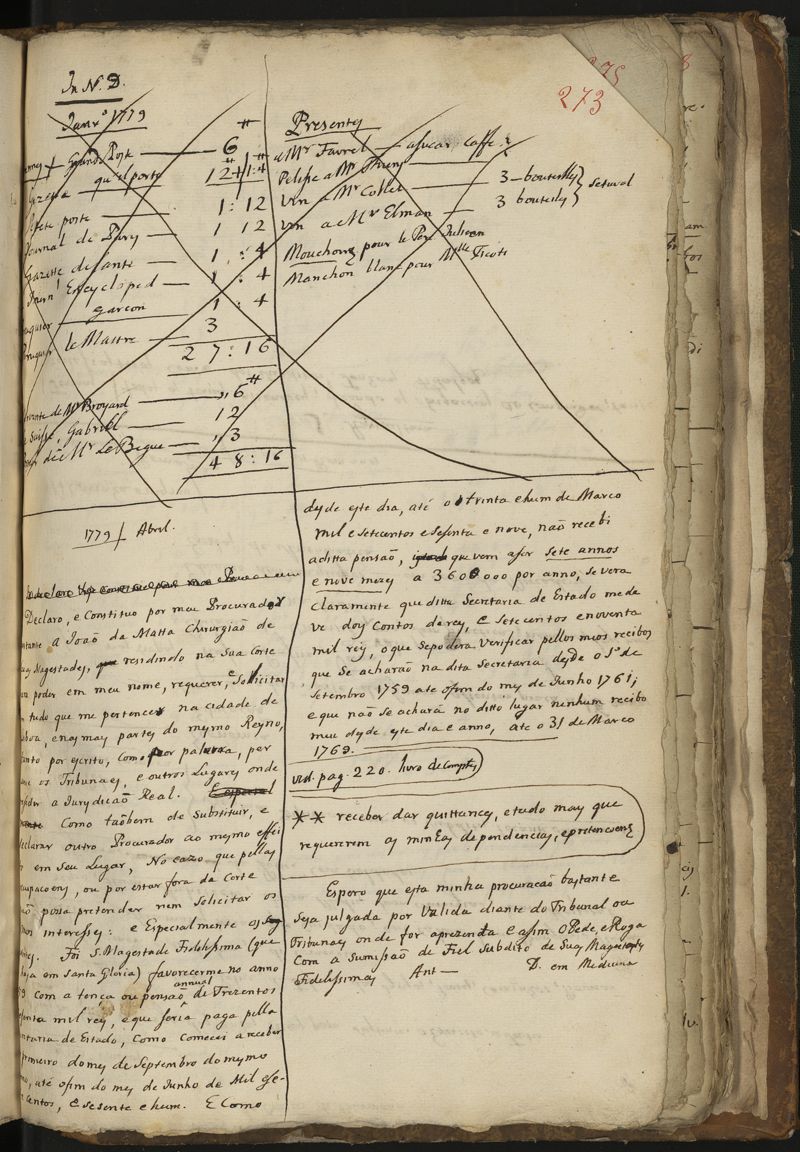 275
273
In N. D.
Janr.º 1779
Grande Poste — 6 #
Gazette qu'el porte 12 # 1:4
Pte porte — 1:12
Journal de Bury — 1 12
Gazette de santé — 1:4
Journ.l Encycloped — 1:4
garçon — 1:4
le Maitre — 3
27:16
de Mr Broyard — 6 #
Suisse, Gabriel — 12
Mr Le Begue — 3
48:16
Presentes
a Mr Favrel — asucar, caffe
Pelisse a Mr
Vin a Mr Collet — 3 — bouteilles
Vin a Mr Elman — 3 bouteilles
Setuval
Mouchons pour le Pere Julien
Manchon blanc pour Mlle
1779 Abril.
Declaro, e Constituo por meu Procurador
a João da Matta Chirurgião de
Magestades, que residindo na Sua Corte
poder em meu nome, requerer, e Sollicitar
tudo que me pertencer na cidade de
boa, e nas mais partes do mesmo Reyno,
por escrito, como por palavra, per
os Tribunaes, e outros Lugares onde
a Jurydicão Real. Especial
Como taõbem de Substituir, e
declarar outro Procurador ao mesmo effei
em seu Lugar, No cazo que pellas
occupacoens, ou por estar fora da Corte
não possa pretender nem Solicitar os
interesses: e Especialmente os Seg
Foi S. Magestade Fidelissima (que
haja em Santa Gloria) favorecerme no anno
59 com a tença ou pensaõ annual de Trezentos
senta mil rey, e que seria paga pella
Secretaria de Estado, como comecei a receber
primeiro do mes de Septembro do mesmo
anno, até ofim do mes de Junho de Mil e se-
centos, e sesente e hum. E Como
dezde este dia, até o trinta e hum de Marco
mil e setecentos e sesenta e nove, não recebi
a ditta pensão, que vem a ser sete annos
e nove mezes a 360 000 por anno, se vera
claramente que ditta Secretaria de Estado me de
ve dois Contos de rey, e Setecentos e noventa
mil rey, o que se podera verificar pellos meos recibos
que se acharão na dita Secretaria dezde o 1º de
Setembro 1759 ate ofim do mes de Junho 1761;
e que não se achará no ditto lugar nenhum recibo
meu dezde este dia e anno, até o 31 de Marco
1769.
vid. pag. 220. livro de Comptes
** receber dar quittances, e tudo mais que
requererem as minhas dependencias, e pretencoens
Espero que esta minha procuracaõ bastante
seja julgada por Valida diante do Tribunal ou
Tribunaes onde for aprezentada e asim o Pede, e Roga
Com a Sumissaõ de Fiel Subdito de Suas Magestades
Fidelissimas Ant — D. em Medicina